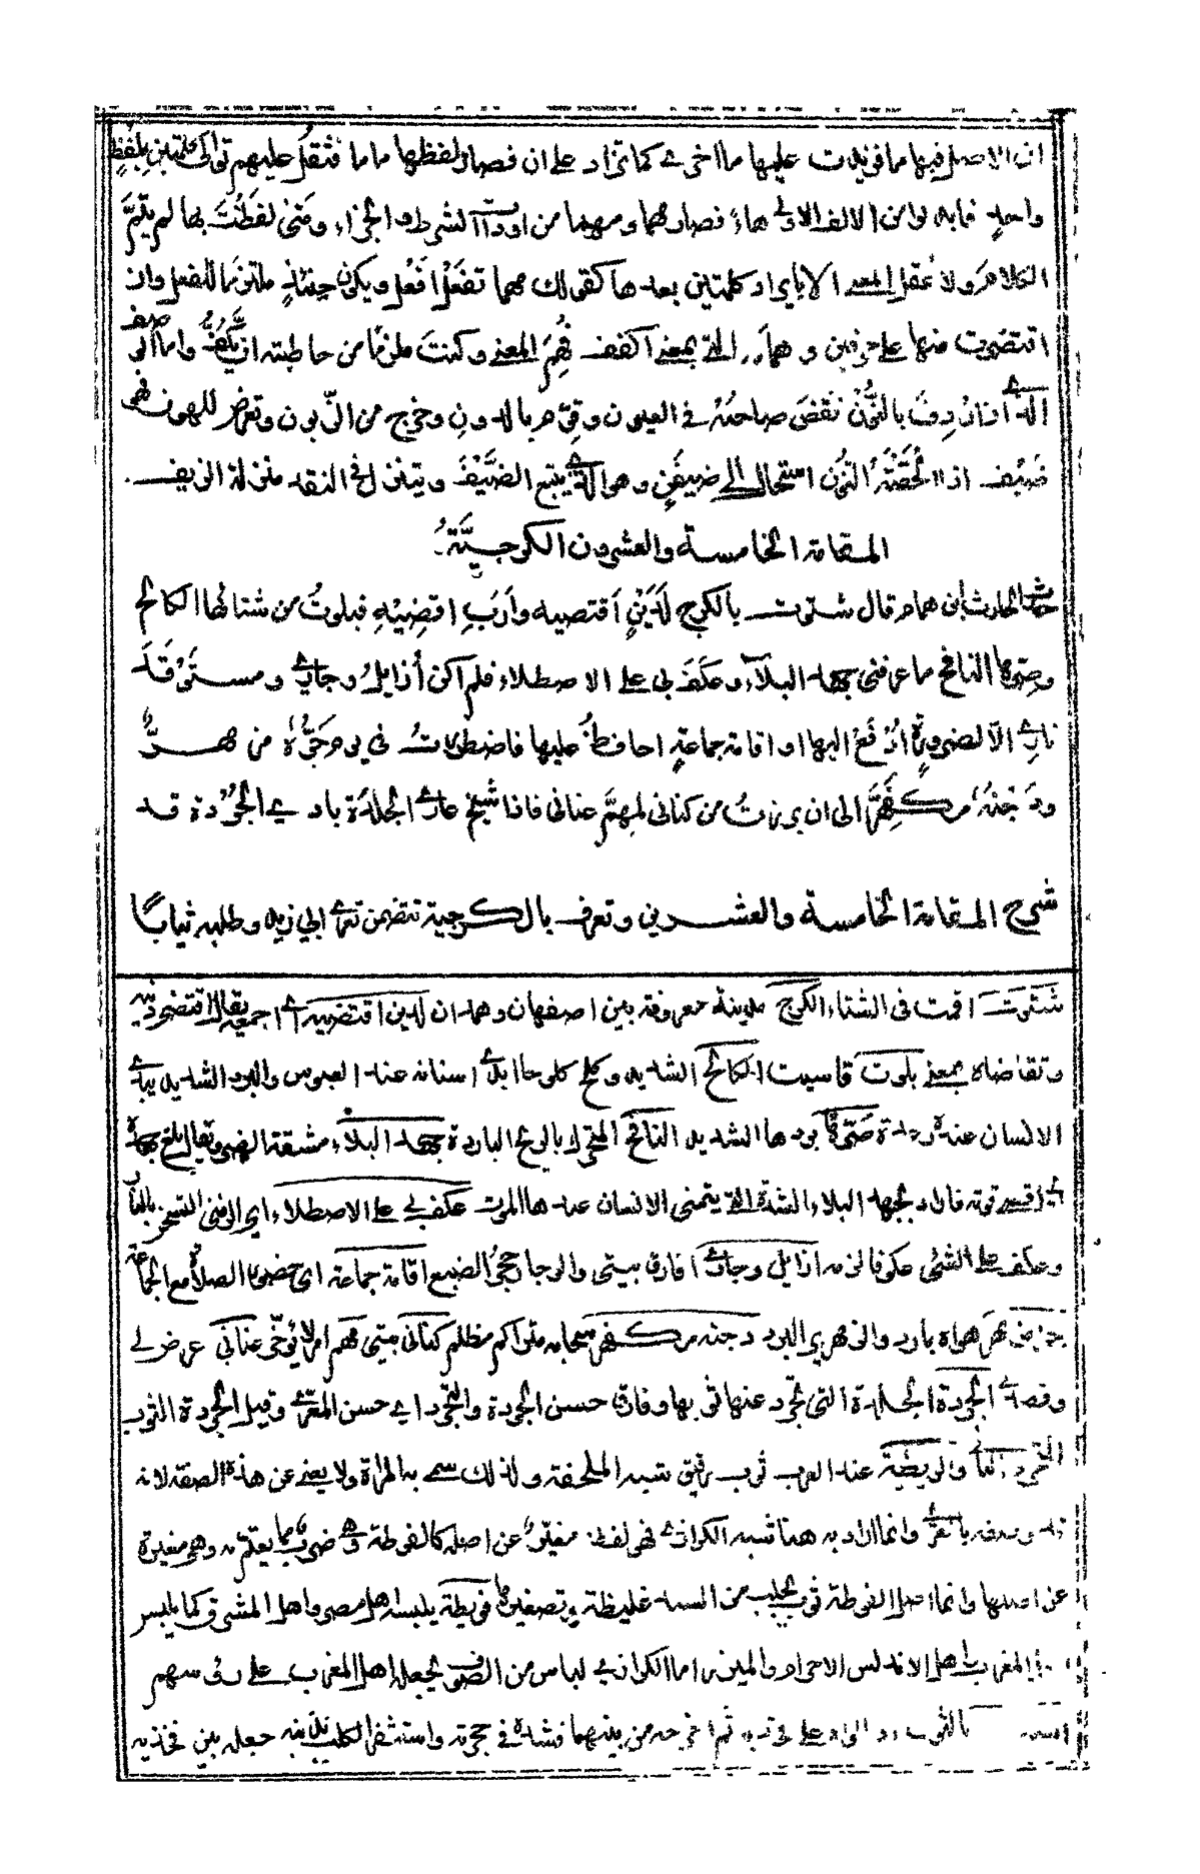 ان الاصل فيها ما فزيدت عليها ما اخرى كما تزاد على ان فصار لفظها ماما فثقل عليهم توالى كلمتين بلفظ
واحدٍ فابدلوا من الالف الاولى هاءً فصارتا مهما ومهما من ادوات الشرط والجزاء ومتى لفظتَ بها لم يتمَّ
الكلام ولا عُقل المعنى الا بايراد كلمتين بعدها كقولك مهما تفعَلْ افعَلْ ويكون حينئذٍ ملتزمًا للفعل وان
اقتصرت منها على حرفين وهما مه التى بمعنى اكفف فُهِمَ المعنى وكنتَ ملزمًا من خاطبته ان يكُفَّ واما الوصف
الذى اذا اردِفَ بالنُّون نقَصَ صاحبُهُ فى العيون وقُوِّم بالدونِ وخرج من الزّبون وتعرض للهون فهو
ضَيْف اذا لحقَتْهُ النُّون استحال الى ضيفَنٍ وهو الذى يتبع الضَّيْفَ ويتنزل فى النقد منزلة الزيف
المقامة الخامسة والعشرون الكرجيَّةُ
حدّث الحارث ابن همام قال شتوت بالكرج لدَيْنٍ اقتضيه وأرَبٍ اقضِيْهِ فبلوتُ من شتائها الكالح
وصِرّها النافح ما عرفنى جهد البلآء وعكَفَ بى على الاصطلاء فلم اكن أُزايلُ وجارى ومستَوْقَدَ
نارى الّا لضرورةٍ ادْفَعُ اليها او اقامة جماعةٍ احافظُ عليها فاضطررتُ فى يوم جَوُّهُ مزمهرٌّ
ودَجْنُهُ مكفَهِرٌّ الى ان برزتُ من كنانى لمهمٍّ عنانى فاذا شيخ عارى الجلدة بادى الجُرْدة قد
شرح المقامة الخامسة والعشرين وتعرف بالكرجية تتضمن تعرى ابى زيد وطلبه ثيابًا
شتوت اقمت فى الشتاء الكرج مدينة معروفة بين اصفهان وهمدان لدين اقتضيه اى اجمعه يقال اقتضى دينه
وتقاضاه بمعنى بلوت قاسيت الكالح الشديد وكلح كلوحا ابدى اسنانه عند العبوس والبرد الشديد يبدى
الانسان عنده صرّها بردها الشديد النافح المتحرك بالريح الباردة جهد البلاء مشقة الضر ويقال بلغ جهده
اى اقصى قوته فاراد بجهد البلاء الشدة التى يتمنى الانسان عندها الموت عكف بى على الاصطلاء اى الزمنى التسخن بالنار
وعكف على الشئ عكوفا لزمه ازايل وجارى افارق بيتى والوجار جحر الضبع اقامة جماعة اى حضور الصلاة مع الجماعة
مزمهر هواه بارد والزمهرير البرد دجنه مكفهر سحابه متراكم مظلم كنانى بيتى مهم امر لا يؤخّر عنانى عرض لى
وقصدنى الجردة الجلدة التى تجرد عنها ثوبها وفلان حسن الجردة والتجرد اى حسن المعرّى وقيل الجردة الثوب
والريطة عند العرب ثوب رقيق تشبه الملحفة ولذلك سمى به المراة ولا يعنى عن هذه الصفة لانه
وصفه بالتعرّى وانما اراد به هنا شبه الكرازى فهى لفظة مغيّرة عن اصلها كالفوطة هى ضرب مما يعتم به وهى مغيرة
عن اصلها وانما اصل الفوطة ثوب يجلب من السند غليظة وتصغيرها فويطة يلبسه اهل مصر واهل المشرق كما يلبس
المغرب اهل الاندلس الاحرام والميزر اما الكرازى لباس من الصوف يجعله اهل المغرب على رؤسهم
بالثوب ثم اخرجه من بينهما فشدّه فى حجزته واستثفر الكلب بذنبه جعله بين فخذيه